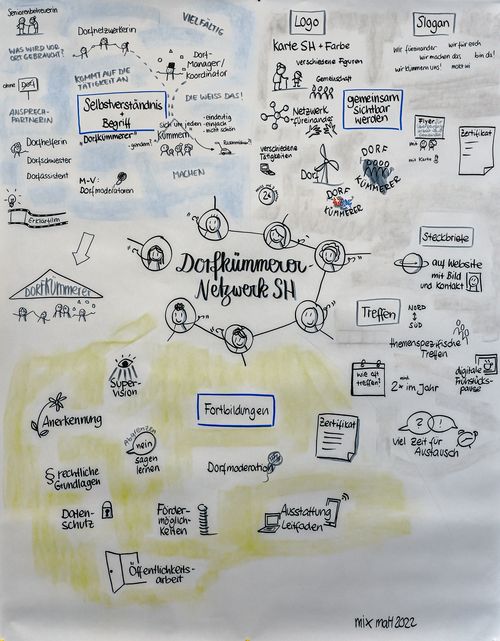 Seniorenbetreuerin
WAS WIRD VOR
ORT GEBRAUCHT?
ohne Dorf
ANSPRECH-
PARTNERIN
Dorfnetzwerkerin
VIELFÄLTIG
Dorf-
Manager/
Koordinator
KOMMT AUF DIE
TÄTIGKEIT AN
Selbstverständnis
+
Begriff
DIE WEISS DAS!
"Dorfkümmerer"
sich um jeden
kümmern
-eindeutig
-einfach
-nicht schön
Dorfhelferin
Dorfschwester
Dorfassistent
M-V:
Dorfmoderatoren
MACHEN
Erklärfilm
DORFKÜMMERER
Logo
Karte SH + Farbe
verschiedene Figuren
Gemeinschaft
Netzwerk
füreinander
gemeinsam
sichtbar
werden
verschiedene
Tätigkeiten
Dorf
DORF
KÜMMERER
DORF
KÜMMERER
24
Slogan
Wir füreinander
wir für euch
wir machen das
bin da!
wir kümmern uns!
Flyer
mit
mit Karte
Zertifikat
Dorfkümmerer-
Netzwerk SH
Steckbriefe
auf Website
mit Bild
und Kontakt
Treffen
NORD
SÜD
themenspezifische
Treffen
wie oft
treffen?
2x im Jahr
digitale
Frühstücks-
pause
viel Zeit für
Austausch
Fortbildungen
Super-
vision
Anerkennung
Abgrenzen
nein
sagen
lernen
§ rechtliche
Grundlagen
Dorfmoderation
Zertifikat
Daten-
schutz
Förder-
möglich-
keiten
Ausstattung
Leitfaden
Öffentlichkeits-
arbeit
mix matt 2022